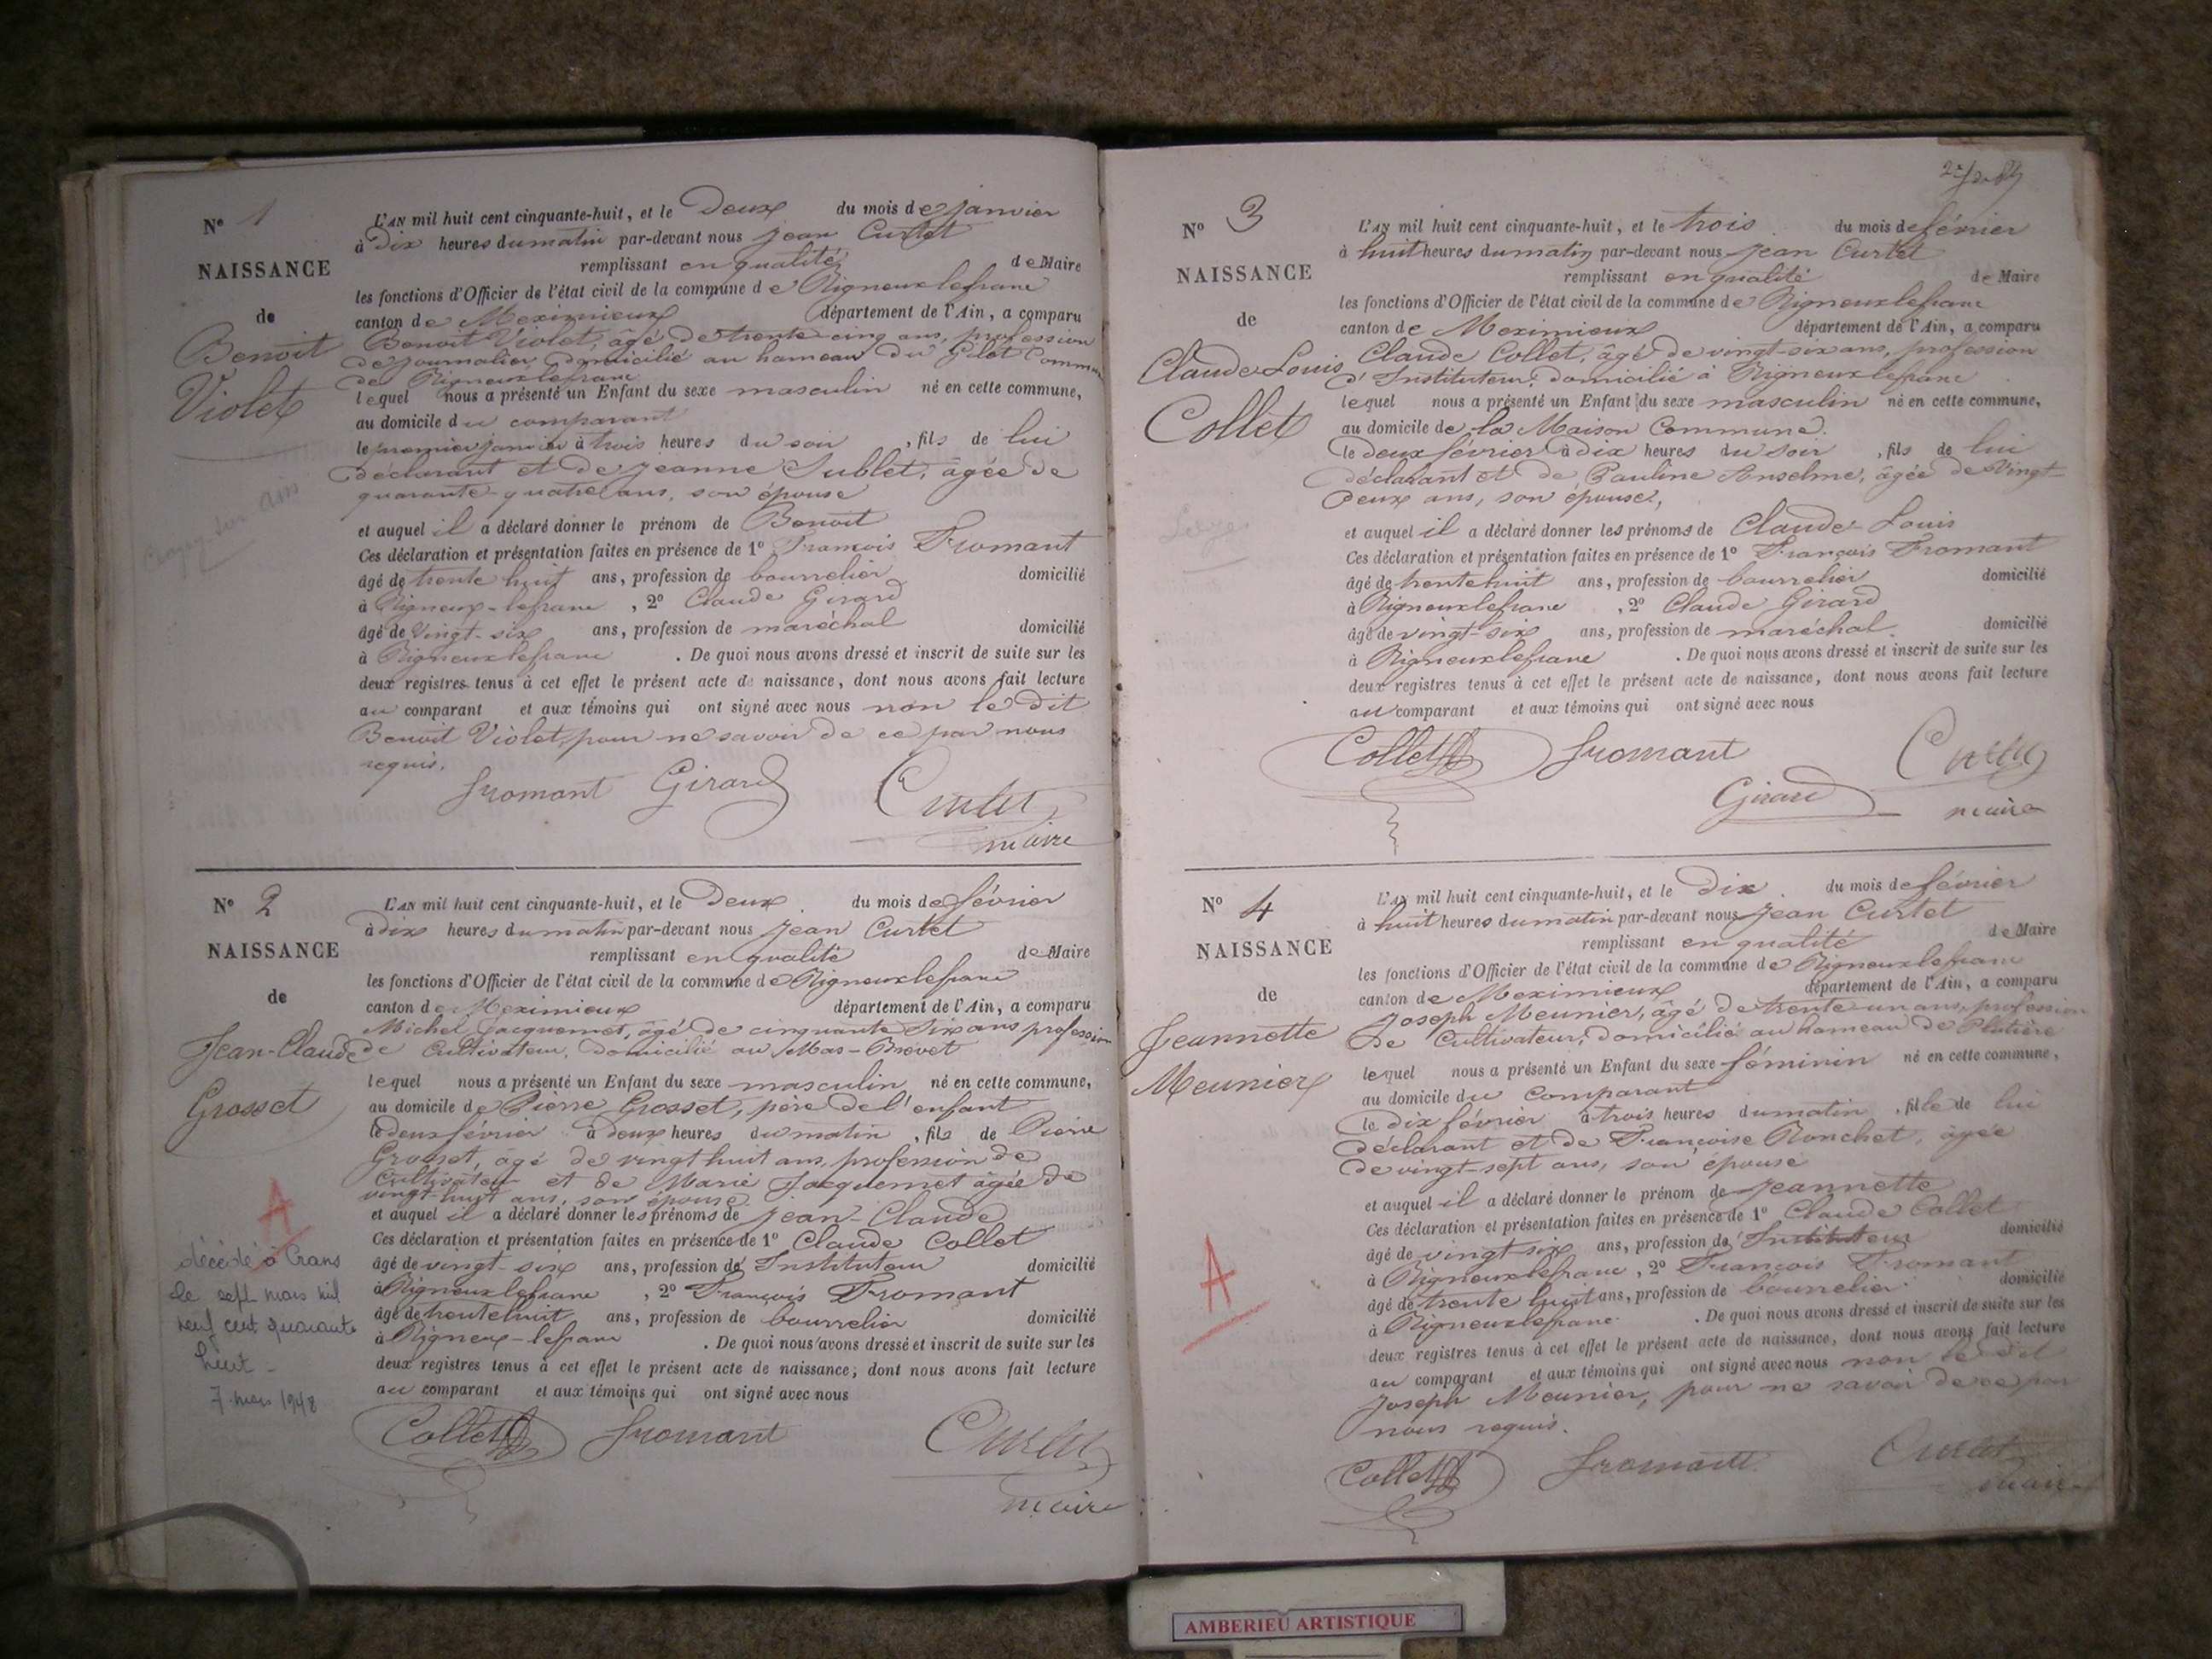 N° 1
NAISSANCE
de
Benoit
Violet
L'AN mil huit cent cinquante-huit, et le Deux du mois de janvier
à dix heures du matin par-devant nous Jean Curtet
remplissant en qualité de Maire
les fonctions d'Officier de l'état civil de la commune de Rigneux lefranc
canton de Meximieux département de l'Ain, a comparu
Benoit Violet, âgé de trente cinq ans, profession
de journalier, domicilié au hameau du Gilet Commune
de Rigneux lefranc
lequel nous a présenté un Enfant du sexe masculin né en cette commune,
au domicile du comparant
le premier janvier à trois heures du soir, fils de lui
déclarant et de Jeanne Sublet, âgée de
quarante-quatre ans, son épouse
et auquel il a déclaré donner le prénom de Benoit
Ces déclaration et présentation faites en présence de 1° François Fromant
âgé de trente huit ans, profession de bourrelier domicilié
à Rigneux-lefranc, 2° Claude Girard
âgé de vingt-six ans, profession de maréchal domicilié
à Rigneux lefranc. De quoi nous avons dressé et inscrit de suite sur les
deux registres tenus à cet effet le présent acte de naissance, dont nous avons fait lecture
au comparant et aux témoins qui ont signé avec nous non le dit
Benoit Violet, pour ne savoir de ce par nous
requis.
Fromant Girard Curtet
maire
N° 2
NAISSANCE
de
Jean-Claude
Grosset
A
décédé à Crans
le sept mars mil
neuf cent quarante
huit -
7 mars 1948
L'AN mil huit cent cinquante-huit, et le Deux du mois de février
à dix heures du matin par-devant nous Jean Curtet
remplissant en qualité de Maire
les fonctions d'Officier de l'état civil de la commune de Rigneux lefranc
canton de Meximieux département de l'Ain, a comparu
Michel Jacquemet, âgé de cinquante six ans, profession
de Cultivateur, domicilié au Mas-Brevet
lequel nous a présenté un Enfant du sexe masculin né en cette commune,
au domicile de Pierre Grosset, père de l'enfant
le deux février à deux heures du matin, fils de Pierre
Grosset, âgé de vingt huit ans, profession de
Cultivateur et de Marie Jacquemet âgée de
vingt-huit ans, son épouse
et auquel il a déclaré donner les prénoms de Jean-Claude
Ces déclaration et présentation faites en présence de 1° Claude Collet
âgé de vingt-six ans, profession d'Instituteur domicilié
à Rigneux lefranc, 2° François Fromant
âgé de trente huit ans, profession de bourrelier domicilié
à Rigneux-lefranc. De quoi nous avons dressé et inscrit de suite sur les
deux registres tenus à cet effet le présent acte de naissance, dont nous avons fait lecture
au comparant et aux témoins qui ont signé avec nous
Collet Fromant Curtet
maire
N° 3
NAISSANCE
de
Claude Louis
Collet
L'AN mil huit cent cinquante-huit, et le trois du mois de février
à huit heures du matin par-devant nous Jean Curtet
remplissant en qualité de Maire
les fonctions d'Officier de l'état civil de la commune de Rigneux lefranc
canton de Meximieux département de l'Ain, a comparu
Claude Collet, âgé de vingt-six ans, profession
d'Instituteur, domicilié à Rigneux lefranc
lequel nous a présenté un Enfant du sexe masculin né en cette commune,
au domicile de la Maison Commune.
le deux février à dix heures du soir, fils de lui
déclarant et de Pauline Anselme, âgée de vingt-
deux ans, son épouse,
et auquel il a déclaré donner les prénoms de Claude Louis
Ces déclaration et présentation faites en présence de 1° François Fromant
âgé de trente huit ans, profession de bourrelier domicilié
à Rigneux lefranc, 2° Claude Girard
âgé de vingt-six ans, profession de maréchal domicilié
à Rigneux lefranc. De quoi nous avons dressé et inscrit de suite sur les
deux registres tenus à cet effet le présent acte de naissance, dont nous avons fait lecture
au comparant et aux témoins qui ont signé avec nous
Collet Fromant Curtet
Girard maire
N° 4
NAISSANCE
de
Jeannette
Meunier
A
L'AN mil huit cent cinquante-huit, et le Dix du mois de février
à huit heures du matin par-devant nous Jean Curtet
remplissant en qualité de Maire
les fonctions d'Officier de l'état civil de la commune de Rigneux lefranc
canton de Meximieux département de l'Ain, a comparu
Joseph Meunier, âgé de trente un ans, profession
de Cultivateur, domicilié au hameau de Platière
lequel nous a présenté un Enfant du sexe féminin né en cette commune,
au domicile du Comparant
le dix février à trois heures du matin, fille de lui
déclarant et de Françoise Ronchet, âgée
de vingt-sept ans, son épouse
et auquel il a déclaré donner le prénom de Jeannette
Ces déclaration et présentation faites en présence de 1° Claude Collet
âgé de vingt six ans, profession d'Instituteur domicilié
à Rigneux lefranc, 2° François Fromant
âgé de trente huit ans, profession de bourrelier domicilié
à Rigneux lefranc. De quoi nous avons dressé et inscrit de suite sur les
deux registres tenus à cet effet le présent acte de naissance, dont nous avons fait lecture
au comparant et aux témoins qui ont signé avec nous non le dit
Joseph Meunier, pour ne savoir de ce par
nous requis.
Collet Fromant Curtet
maire
AMBERIEU ARTISTIQUE